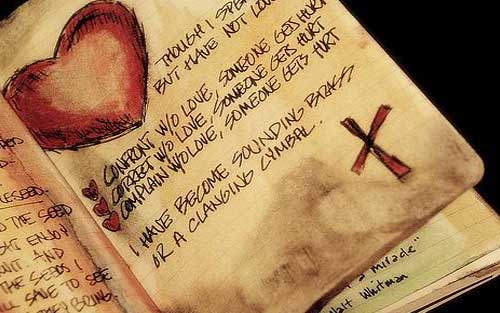 THOUGH I SPE
BUT HAVE NOT LOV
CONFRONT W/O LOVE, SOMEONE GETS HURT
CORRECT W/O LOVE, SOMEONE GETS HURT
COMPLAIN W/O LOVE, SOMEONE GETS HURT
I HAVE BECOME SOUNDING BRASS
OR A CLANGING CYMBAL.
O THE SEED
ENJOY
AND
THE SEEDS I
SAVE TO SEE
THEY BRING.
a miracle"
Walt Whitman